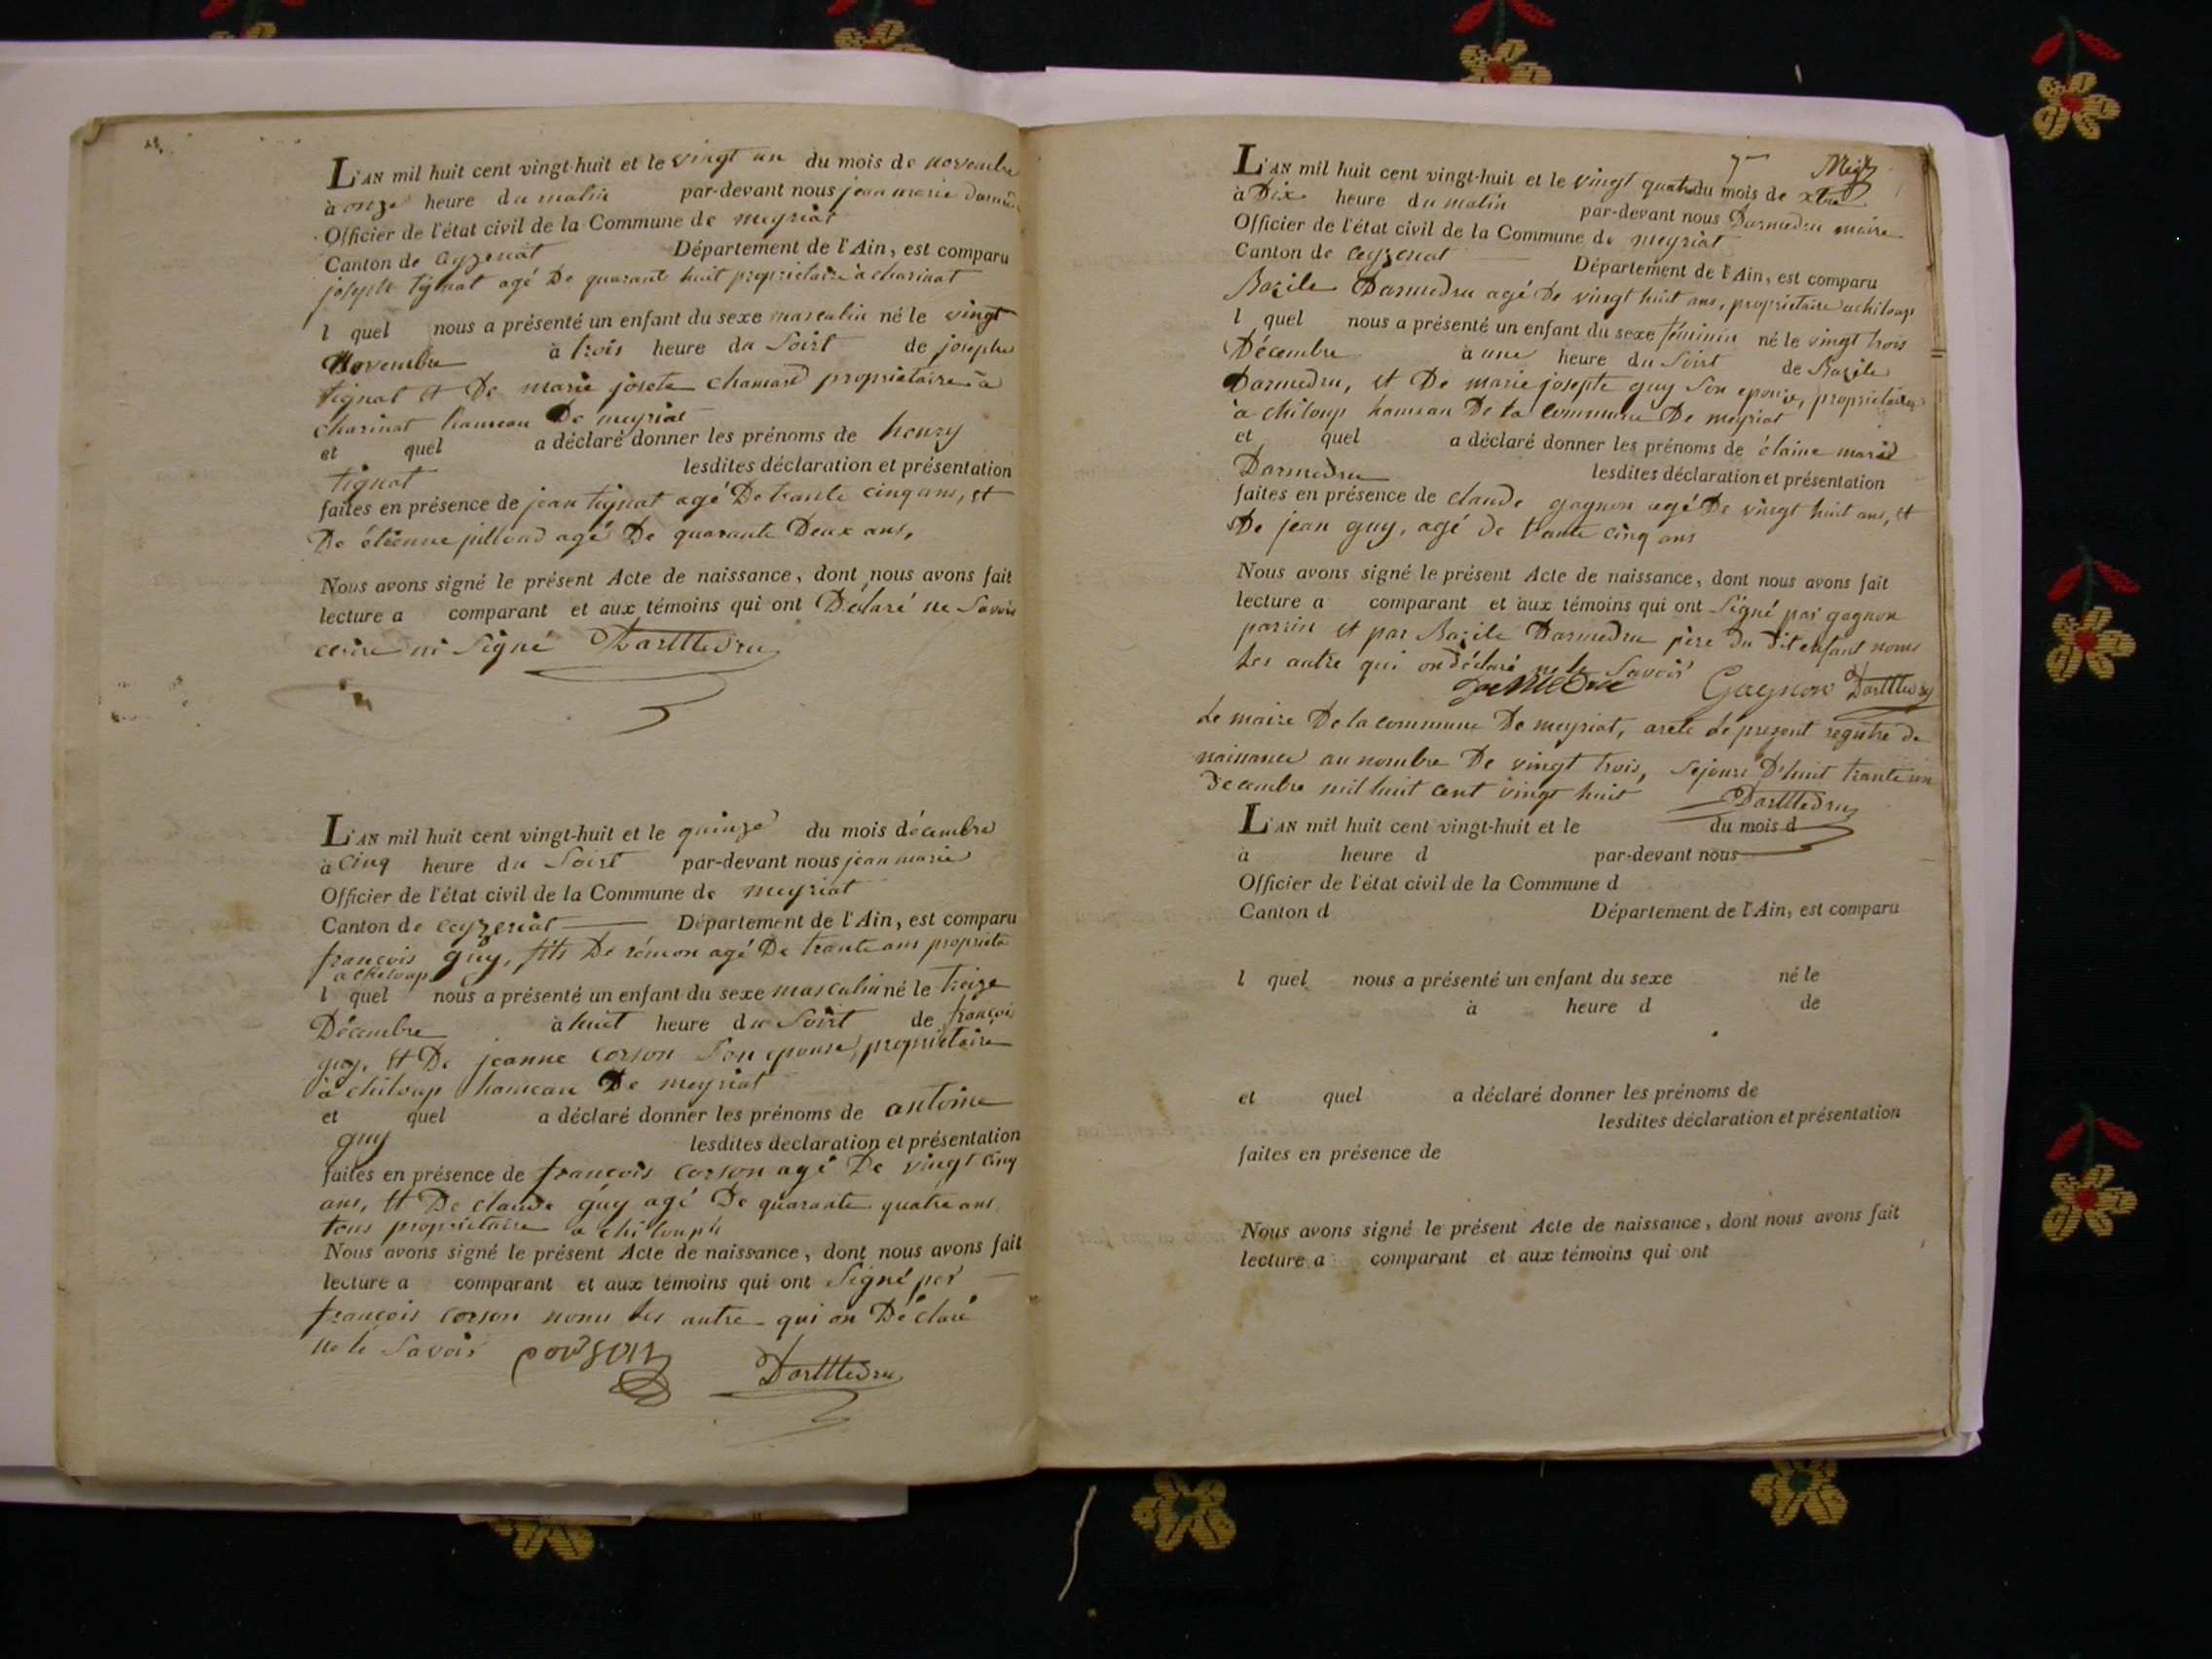 L'AN mil huit cent vingt-huit et le vingt un du mois de novembre
à onze heure du matin par-devant nous jean marie
Officier de l'état civil de la Commune de meyriat
Canton de ceyzeriat Département de l'Ain, est comparu
josepte tignat agé De quarante huit proprietaire à charinat
l quel nous a présenté un enfant du sexe masculin né le vingt
Novembre à trois heure du Soirt de josephe
tignat et De marie josete chanard proprietaire à
charinat hameau De meyriat
et quel a déclaré donner les prénoms de henry
tignat lesdites déclaration et présentation
faites en présence de jean tignat agé De trante cinq ans, et
De étienne pilloud agé De quarante Deux ans,
Nous avons signé le présent Acte de naissance, dont nous avons fait
lecture a comparant et aux témoins qui ont Déclaré ne Savoir
ni Signé Darmedru
L'AN mil huit cent vingt-huit et le quinze du mois décembre
à Cinq heure du Soirt par-devant nous jean marie
Officier de l'état civil de la Commune de meyriat
Canton de ceyzeriat Département de l'Ain, est comparu
françois guy, fils De rémon agé De trante ans proprieta
a chiloup
l quel nous a présenté un enfant du sexe masculin né le treize
Décembre à huit heure du Soirt de françois
guy, et De jeanne corson Son epouse, proprietaire
à chiloup hameau De meyriat
et quel a déclaré donner les prénoms de antoine
guy lesdites declaration et présentation
faites en présence de françois corson agé De vingt cinq
ans, et De claude guy agé De quarante quatre ans
tous proprietaire a chilouph
Nous avons signé le présent Acte de naissance, dont nous avons fait
lecture a comparant et aux témoins qui ont Signé par
françois corson nonu les autre qui on Déclaré
ne le Savoir corson Darmedru
L'AN mil huit cent vingt-huit et le vingt quatre du mois de xbre
à Dix heure du matin par-devant nous Darmedru maire
Officier de l'état civil de la Commune de meyriat
Canton de ceyzeriat Département de l'Ain, est comparu
Bazile Darmedru agé De vingt huit ans, proprietaire a chiloup
l quel nous a présenté un enfant du sexe féminin né le vingt trois
Décembre à une heure du Soirt de Bazile
Darmedru, et De marie josepte guy Son epouse, proprietaires
à chiloup hameau De la commune De meyriat
et quel a déclaré donner les prénoms de claine marie
Darmedru lesdites déclaration et présentation
faites en présence de claude gagnon agé De vingt huit ans, et
De jean guy, agé de trante cinq ans
Nous avons signé le présent Acte de naissance, dont nous avons fait
lecture a comparant et aux témoins qui ont Signé par gagnon
parrin et par Bazile Darmedru père du dit enfant nonu
les autre qui on déclaré ne le Savoir
Darmedru Gagnon Darmedru
Le maire De la commune De meyriat, arete le present registre de
naissance au nombre De vingt trois, Sejourd D'huit trante un
décembre mil huit cent vingt huit Darmedru
L'AN mil huit cent vingt-huit et le du mois d
à heure d par-devant nous
Officier de l'état civil de la Commune d
Canton d Département de l'Ain, est comparu
l quel nous a présenté un enfant du sexe né le
à heure d de
et quel a déclaré donner les prénoms de
lesdites déclaration et présentation
faites en présence de
Nous avons signé le présent Acte de naissance, dont nous avons fait
lecture a comparant et aux témoins qui ont